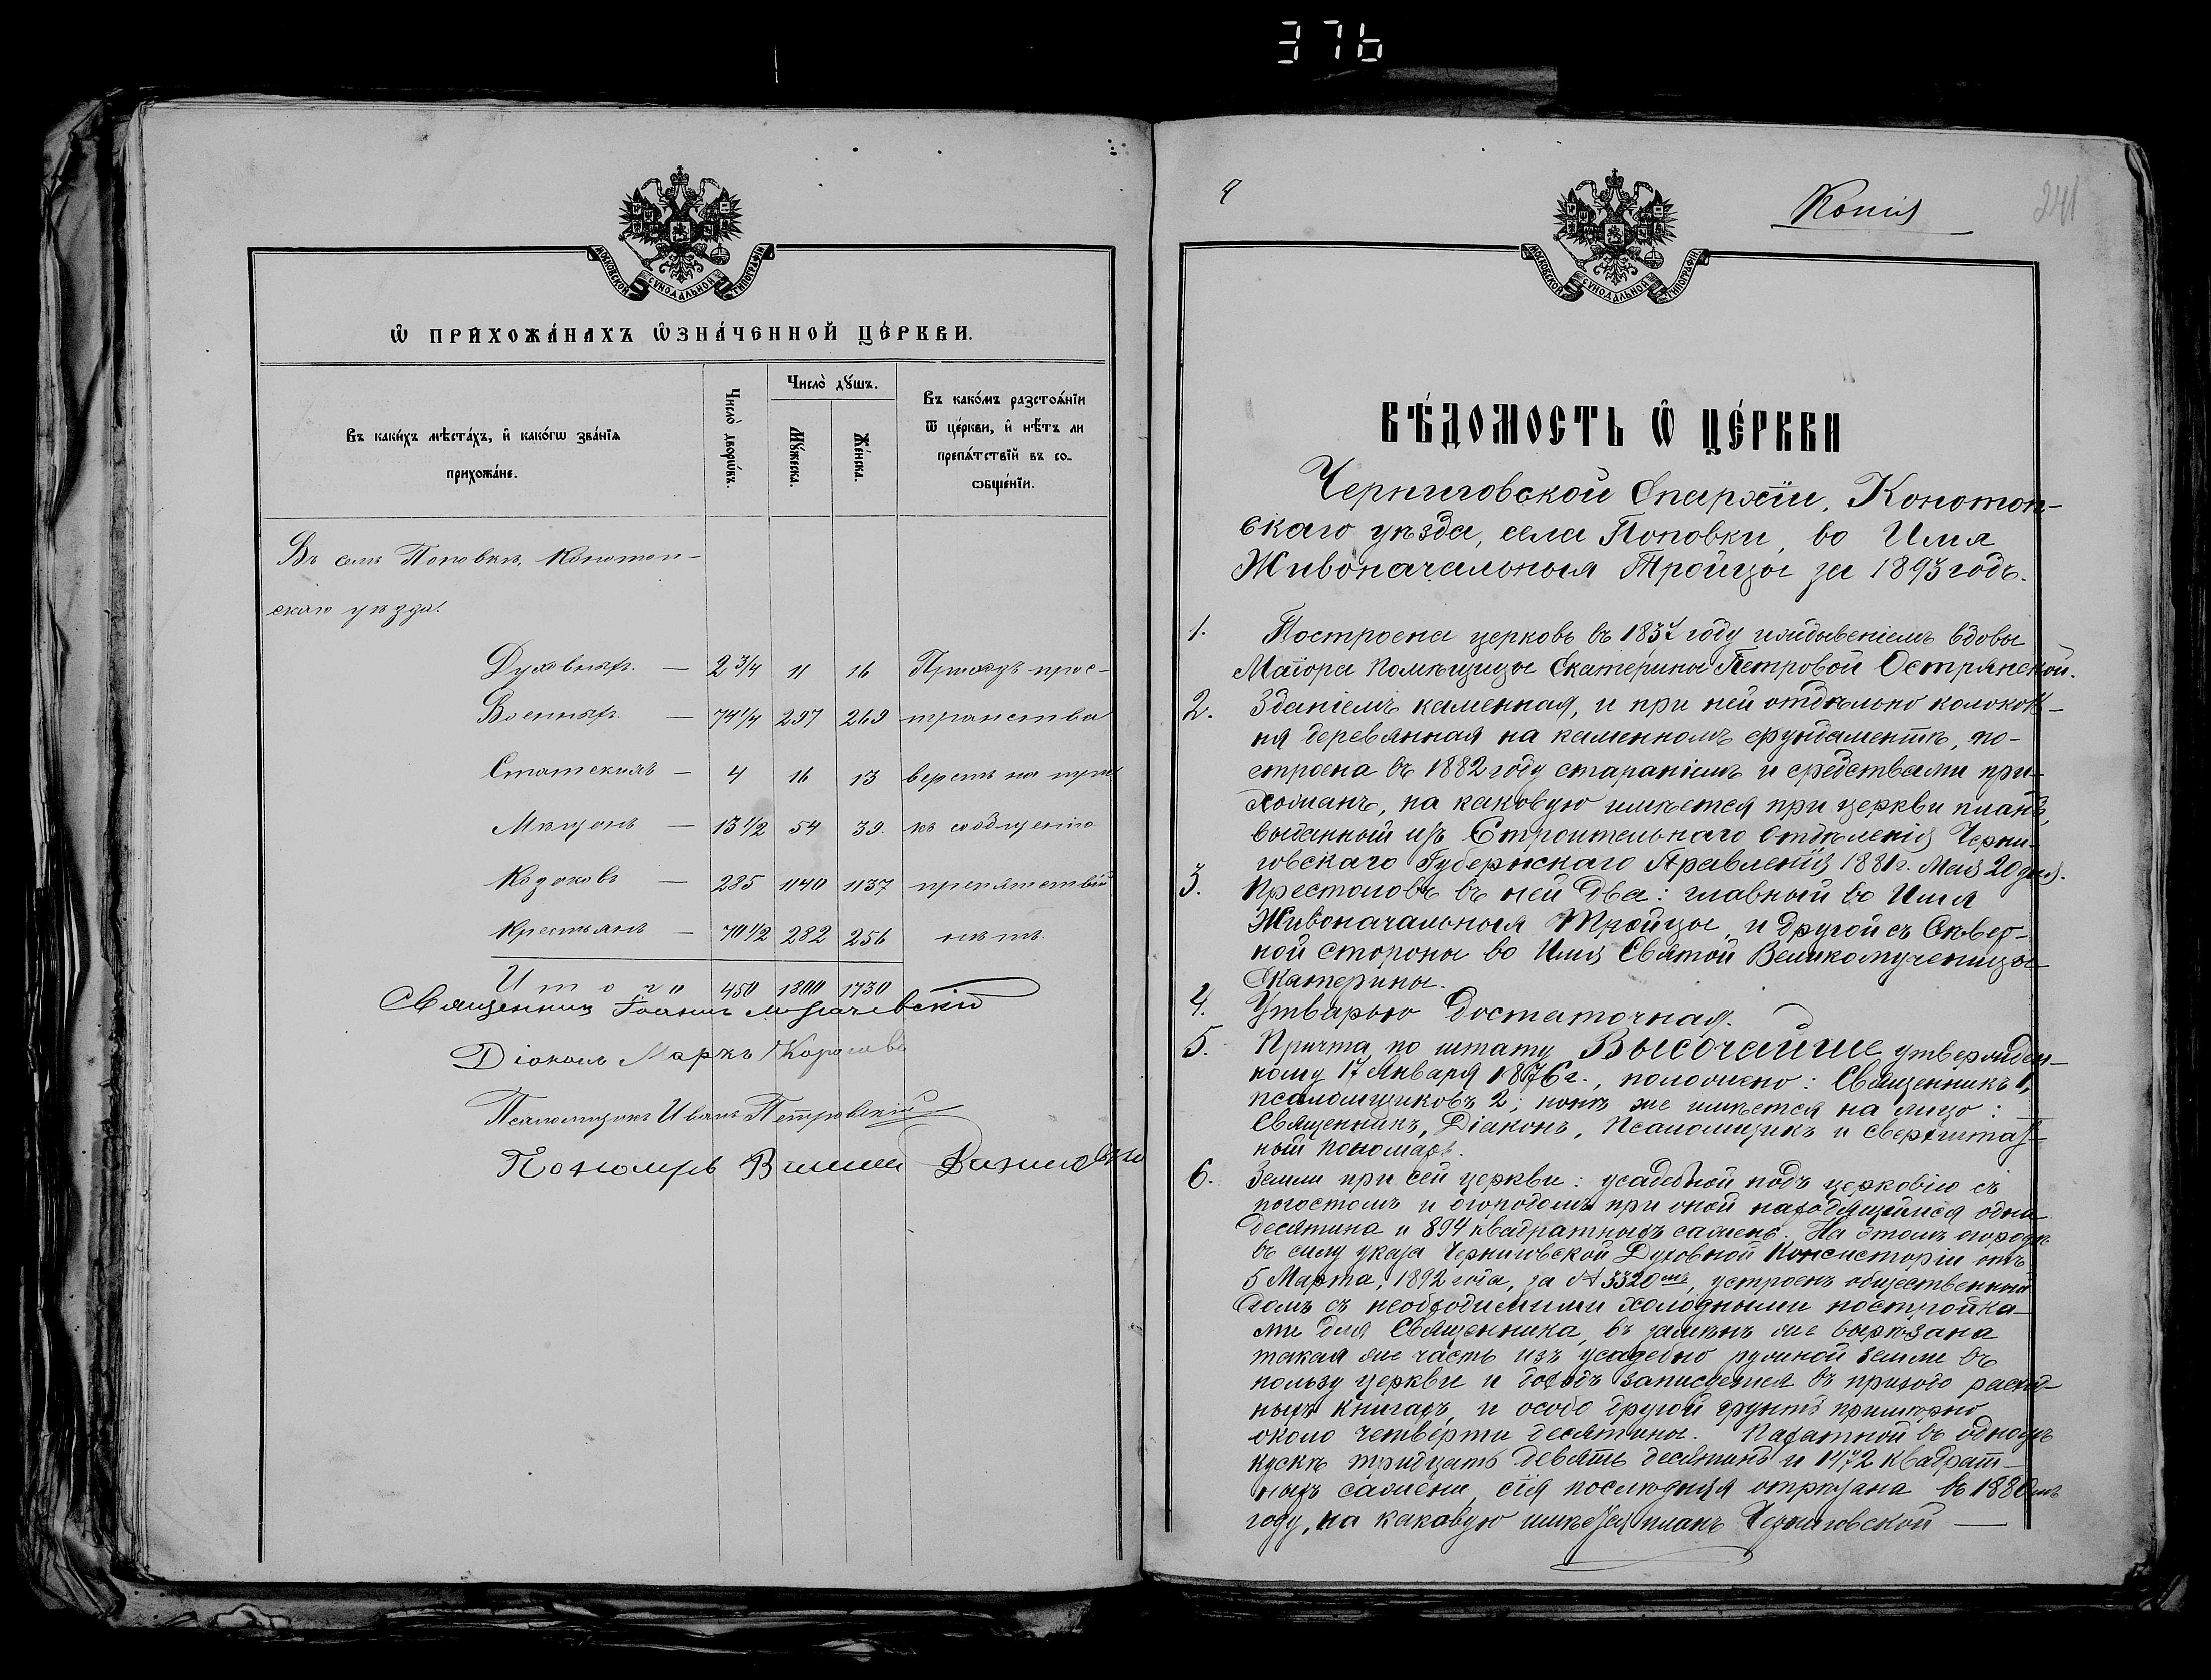 376
МОСКОВСКОЙ СѴНОДАЛЬНОЙ ТИПОГРАФІИ
Ѡ ПРИХОЖА́НАХЪ ѠЗНА́ЧЕННОЙ ЦЕ́РКВИ.
Въ каки́хъ мѣста́хъ, и҆ како́гѡ зва́нїѧ прихожа́не.
Число̀ дворѡ́въ.
Число̀ дꙋ́шъ.
Мꙋ́жеска.
Же́нска.
Въ како́мъ разстоѧ́нїи
ѿ це́ркви, и҆ нѣ́тъ ли
препѧ́тствїй въ со-
ѻбще́нїи.
Въ селѣ Поповкѣ, Конотоп-
скаго уѣзда.
Духовныхъ. — 2 3/4 11 16 Приходъ прос-
Военныхъ — 74 1/4 297 269 транства
Статскихъ — 4 16 13 верстъ на три
Мѣщанъ — 13 1/2 54 39. къ сообщенію
Козаковъ — 285 1140 1137 препятствій
Крестьянъ — 70 1/2 282 256 нѣтъ.
Итого 450 1800 1730
Священникъ Іоаннъ
Діаконъ Маркъ
Псаломщикъ Иванъ Петровскій
Пономарь
4
Копія
241
МОСКОВСКОЙ СѴНОДАЛЬНОЙ ТИПОГРАФІИ
ВѢ́ДОМОСТЬ Ѡ ЦЕ́РКВИ
Черниговской Епархіи, Конотоп-
скаго уѣзда, села Поповки, во Имя
Живоначальныя Тройцы за 1893 годъ.
1. Построена церковь въ 1837 году иждывеніемъ вдовы
Маіора помѣщицы Екатерины Петровой Острянской.
2. Зданіемъ каменная, и при ней отдѣльно колоколь-
ня деревянная на каменномъ фундаментѣ, по-
строена въ 1882 году стараніемъ и средствами при-
хожанъ, на каковую имѣется при церкви планъ,
выданный изъ Строительнаго Отдѣленія Черни-
говскаго Губернскаго Правленія 1881 г. Мая 20 дня.
3. Престоловъ въ ней два: главный во Имя
Живоначальныя Тройцы, и другой съ Сѣвер-
ной стороны во Имя Святой Великомученицы
Екатерины.
4. Утварью достаточная.
5. Причта по штату Высочайше утвержден-
ному 17 Января 1876 г., положено: Священникъ 1,
псаломщиковъ 2; нынѣ же имѣется на лицо:
Священникъ, Діаконъ, Псаломщикъ и сверхштат-
ный Пономарь.
6. Земли при сей церкви: усадебной подъ церковію съ
погостомъ и огородомъ при оной находящимся одна
десятина и 894 квадратныхъ сажень. На этомъ огородѣ
въ силу указа Черниговской Духовной Консисторіи отъ
5 Марта, 1892 года, за № 3320мъ, устроенъ общественный
домъ съ необходимыми холодными постройка-
ми для Священника, въ замѣнъ же вырѣзана
такая же часть изъ усадебно ружной земли въ
пользу церкви и доходъ записуется въ приходо расход-
ныхъ книгахъ, и особо другой грунтъ примѣрно
около четверти десятины. Пахатной въ одномъ
кускѣ тридцать девять десятинъ и 1472 квадрат-
ныхъ сажени, сія послѣдняя отрѣзана въ 1880мъ
году, на каковую имѣется планъ Черниговской —